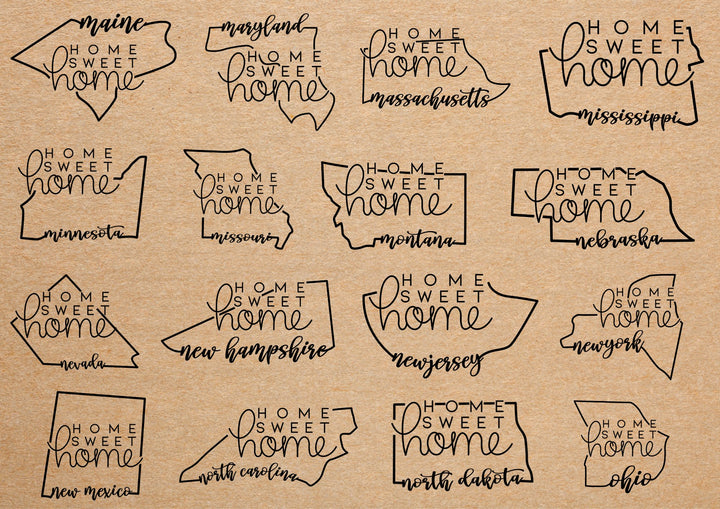 maine
HOME
SWEET
home
maryland
HOME
SWEET
home
HOME
SWEET
home
massachusetts
HOME
SWEET
home
mississippi
HOME
SWEET
home
minnesota
HOME
SWEET
home
missouri
HOME
SWEET
home
montana
HOME
SWEET
home
nebraska
HOME
SWEET
home
nevada
HOME
SWEET
home
new hampshire
HOME
SWEET
home
newjersey
HOME
SWEET
home
newyork
HOME
SWEET
home
new mexico
HOME
SWEET
home
north carolina
HOME
SWEET
home
north dakota
HOME
SWEET
home
ohio